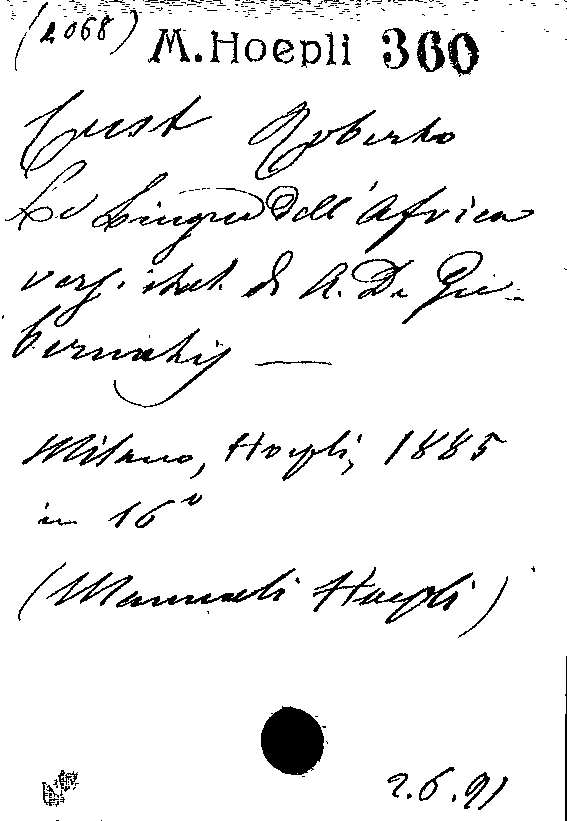 (2068) M.Hoepli 360
Cust Roberto
Le Lingue dell'Africa
vers. ital. di A. De Gu-
bernatis —
Milano, Hoepli, 1885
in 16°
(Manuali Hoepli)
2.6.91